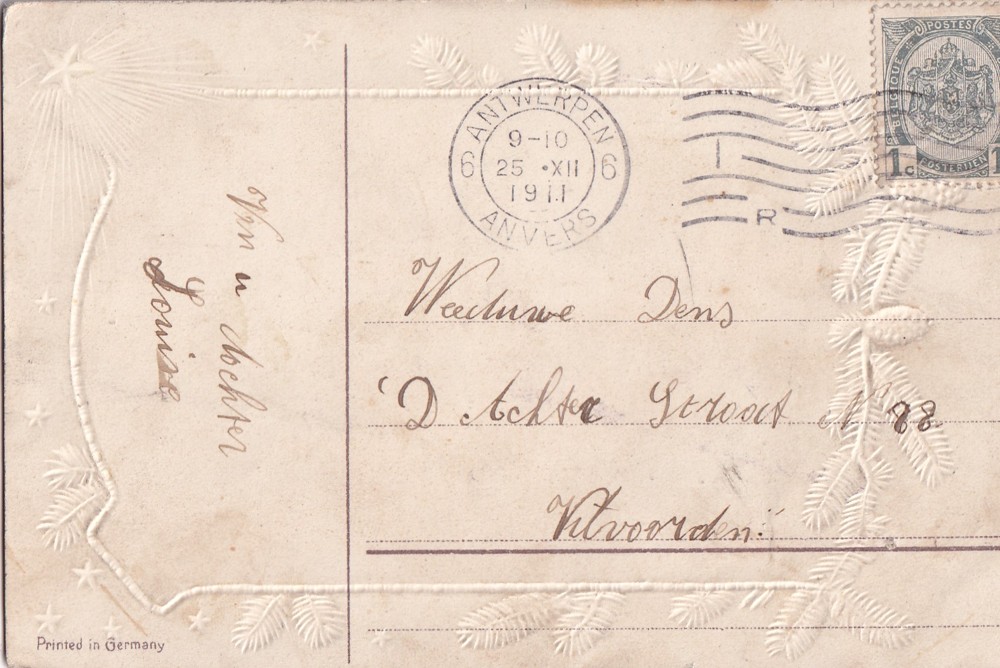 POSTES
BELGIQUE
1c 1
POSTERIJEN
ANTWERPEN
9-10
6 25 · XII 6
1911
ANVERS
R
Vn u dochter
Louise
Weeduwe Dens
D Achter Straat N 88
Vilvoorden
Printed in Germany